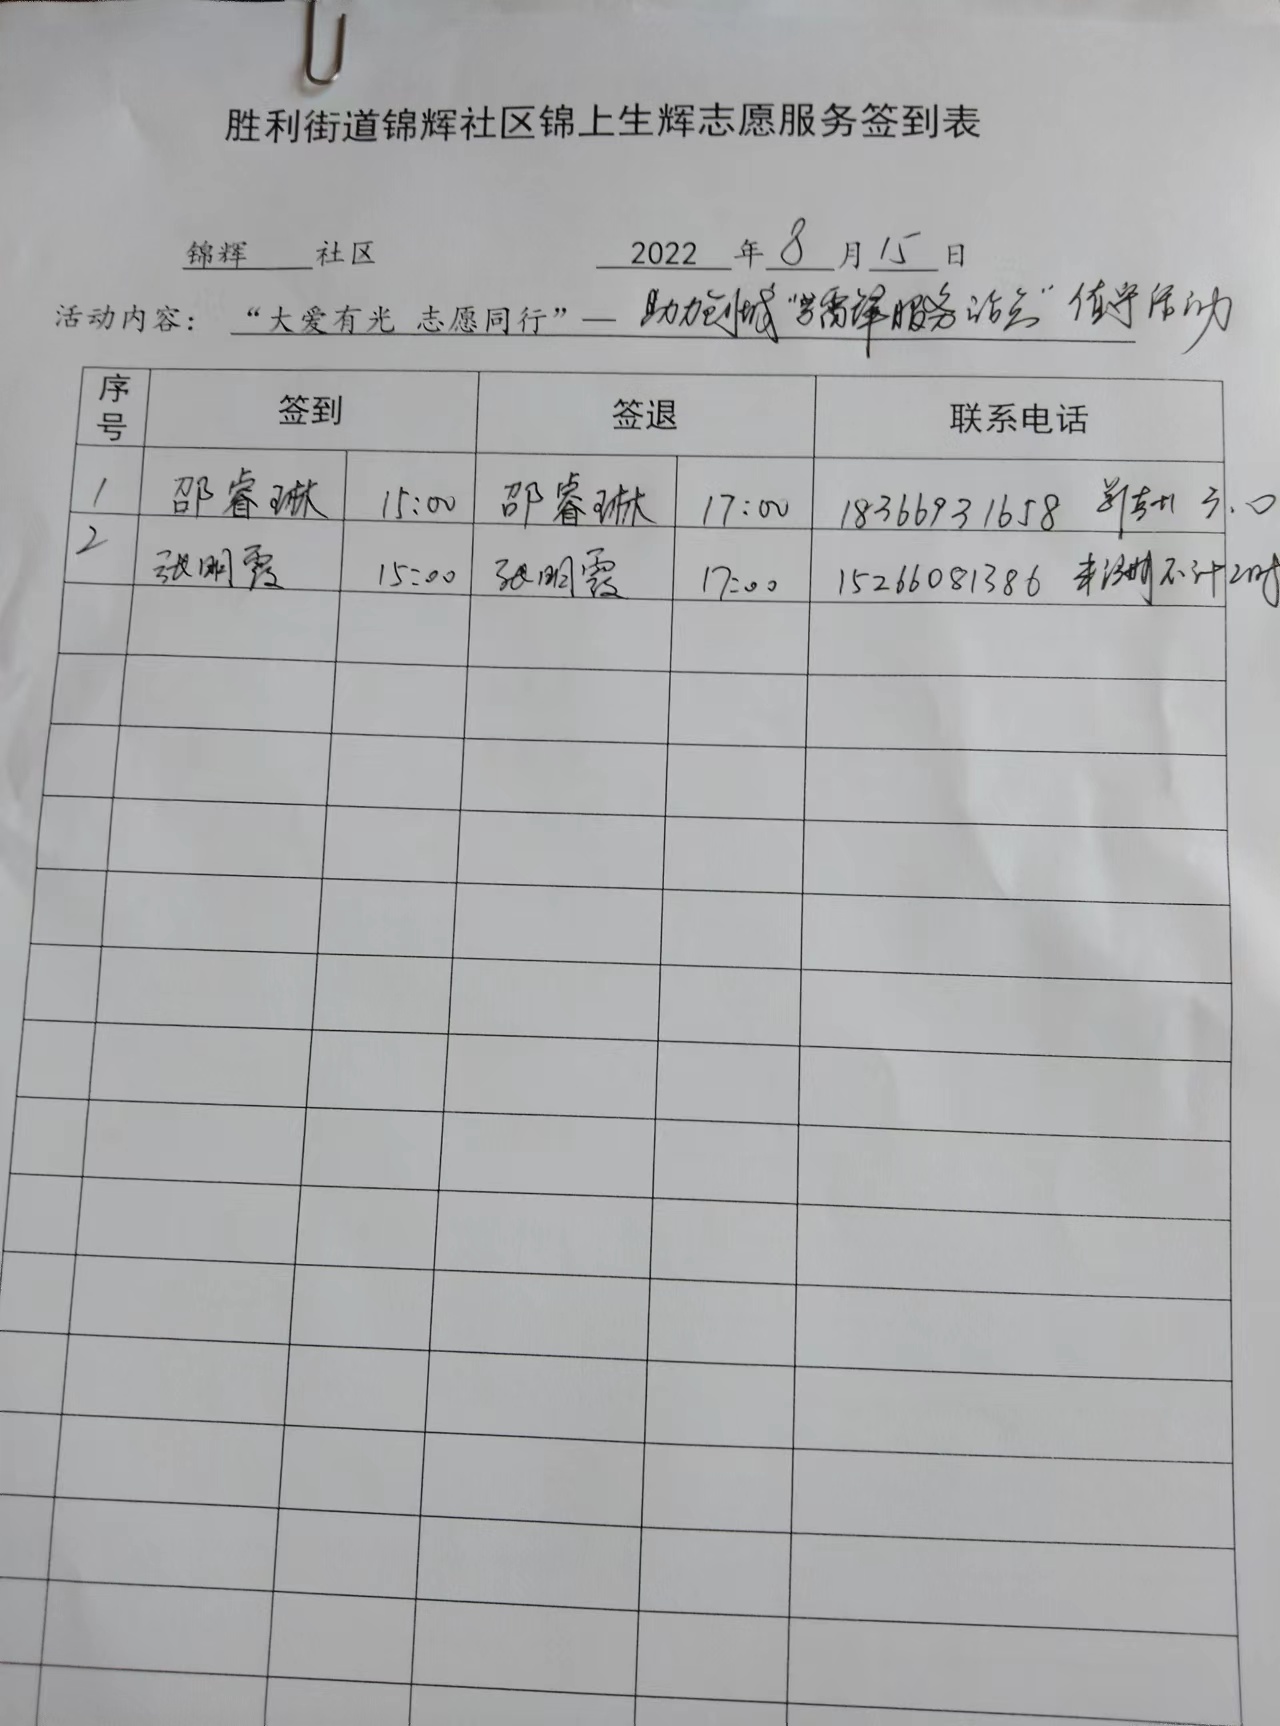 胜利街道锦辉社区锦上生辉志愿服务签到表
锦辉 社区 2022 年 8 月 15 日
活动内容: “大爱有光 志愿同行”— 助力创城“学雷锋服务站点”值守活动
序号 签到 签退 联系电话
1 邵睿琳 15:00 邵睿琳 17:00 18366931658 3.0
2 张明霞 15:00 张明霞 17:00 15266081386 未注册不计时